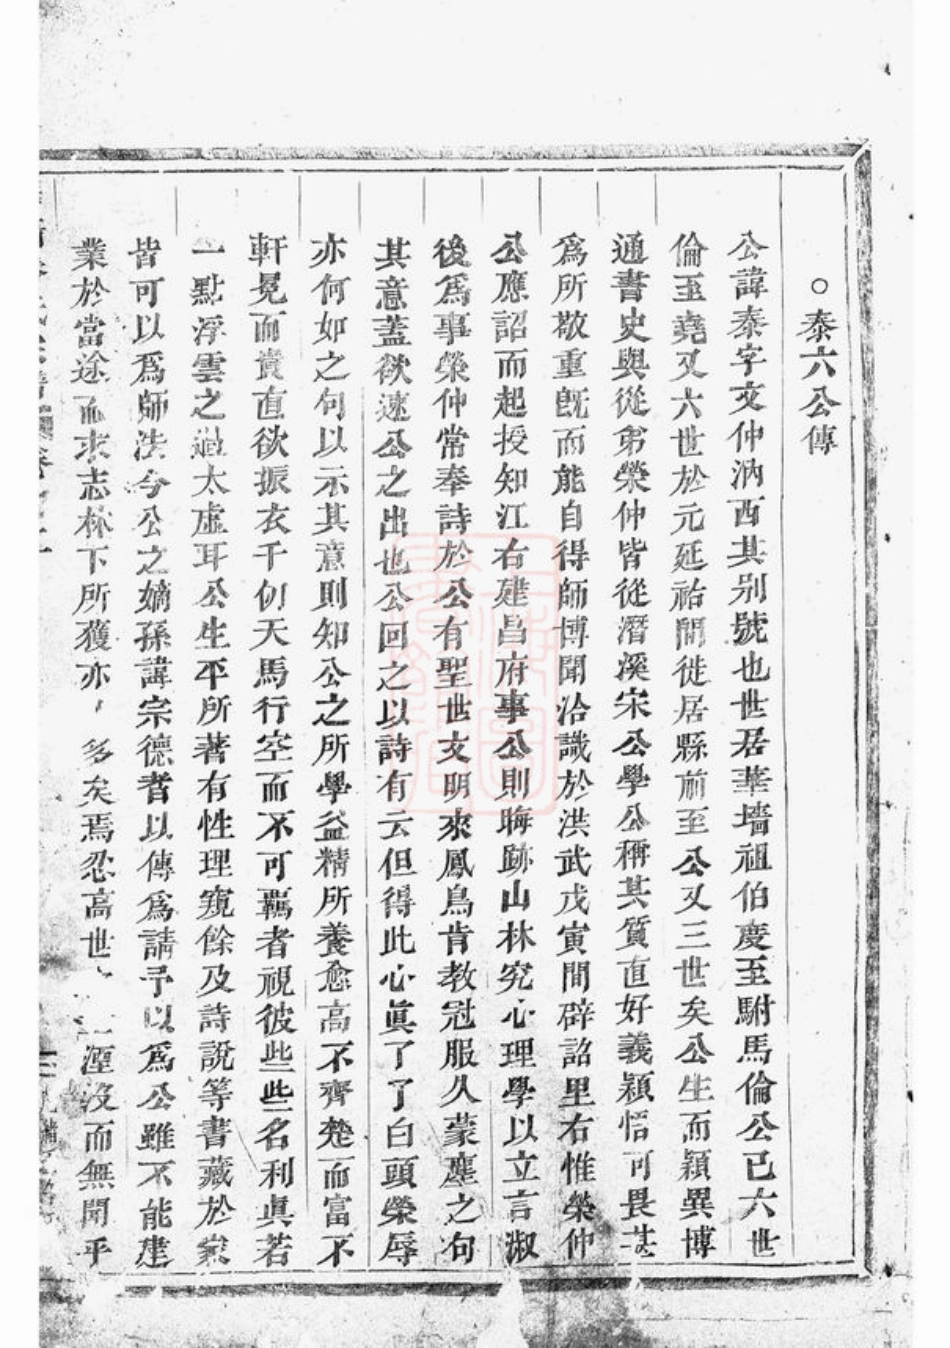 ○泰六公傳
公諱泰字文仲汭西其别號也世居華墻祖伯慶至駙馬倫公已六世
倫至堯又六世於元延祐間徙居縣前至公又三世矣公生而穎異博
通書史與從弟榮仲皆從潛溪宋公學公稱其質直好義穎悟可畏甚
爲所敬重旣而能自得師博聞洽識於洪武戊寅間辟詔里右惟榮仲
公應詔而起授知江右建昌府事公則晦跡山林究心理學以立言淑
後爲事榮仲常奉詩於公有聖世文明來鳳鳥肯教冠服久蒙塵之句
其意蓋欲速公之出也公回之以詩有云但得此心眞了了白頭榮辱
亦何如之句以示其意則知公之所學益精所養愈高不齊楚而富不
軒冕而貴直欲振衣千仞天馬行空而不可羈者視彼些些名利眞若
一點浮雲之過太虛耳公生平所著有性理窺餘及詩說等書藏於家
皆可以爲師法今公之嫡孫諱宗德者以傳爲請予以爲公雖不能建
業於當途而求志林下所獲亦 多矣焉忍高世 湮沒而無聞乎